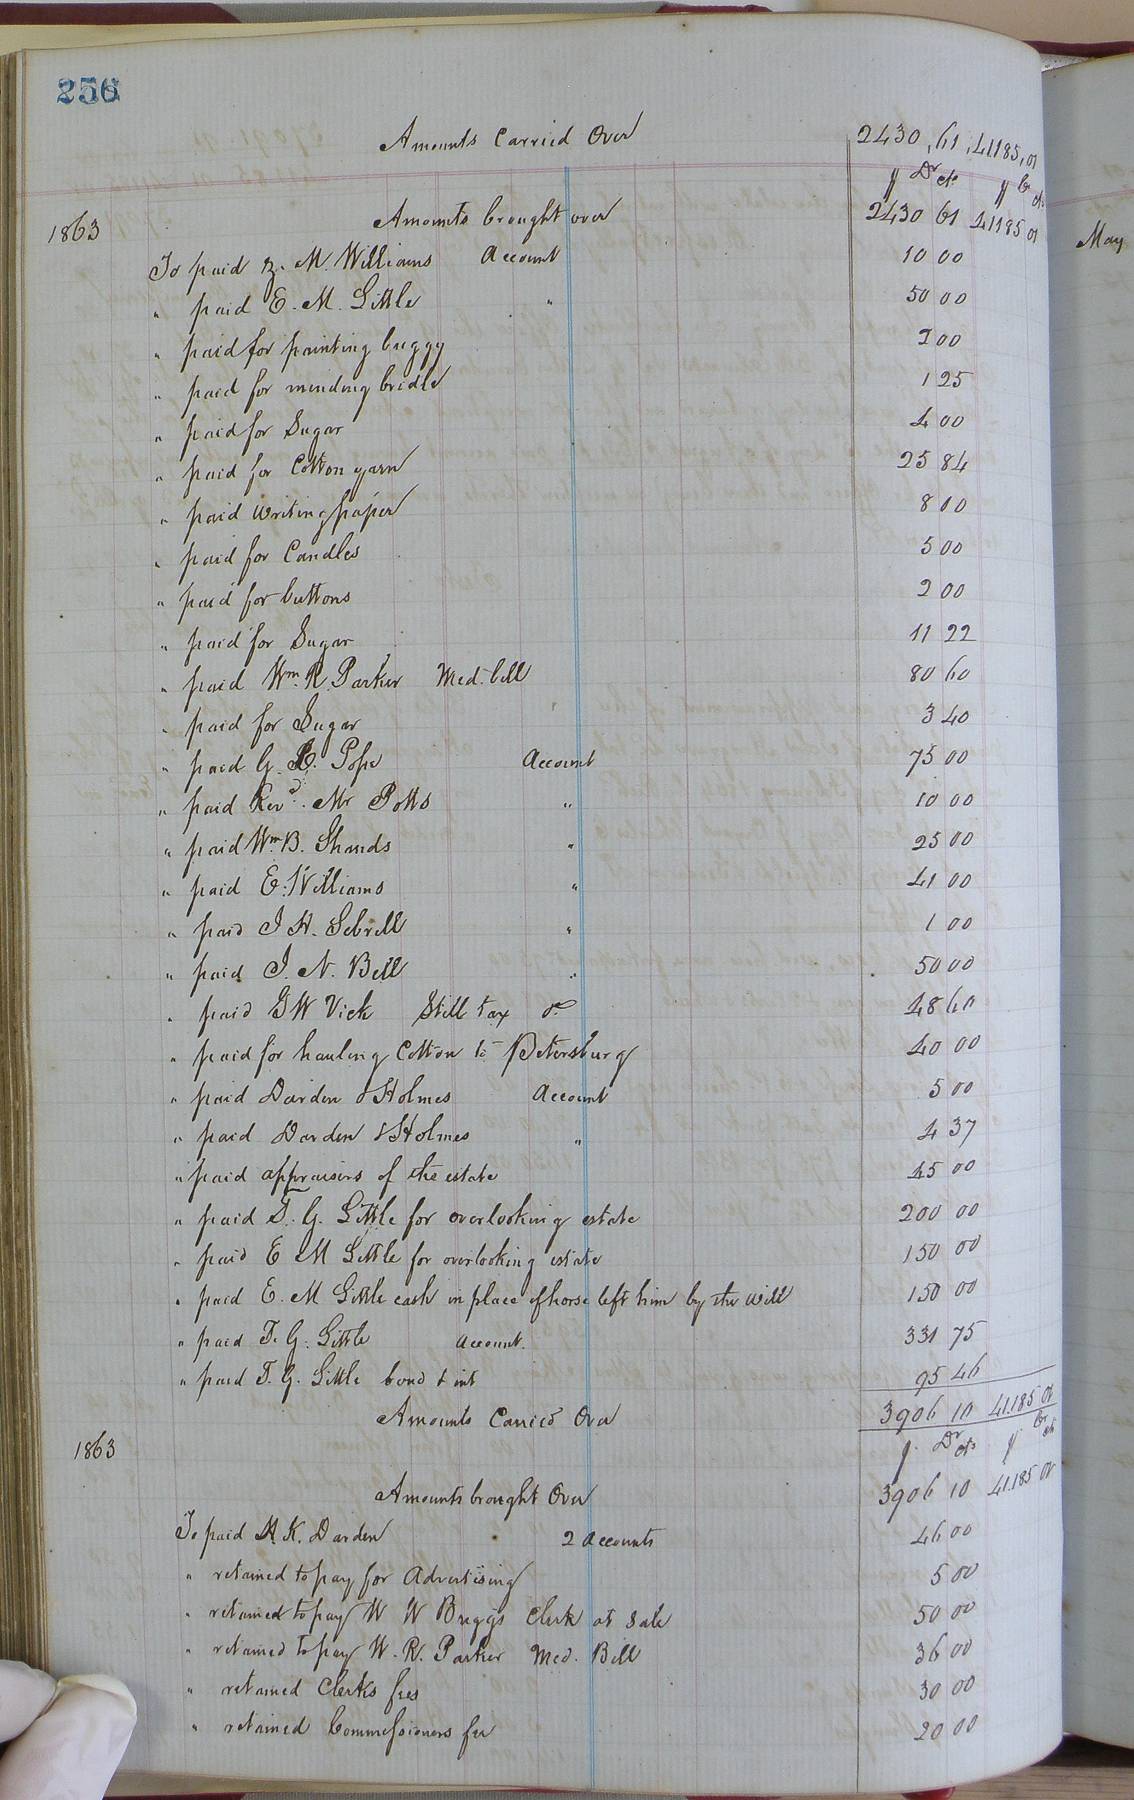 256
Amounts Carried Over 2430,61,41185,01
$ Dr cts $ Cr cts
1863 Amounts brought over 2430 61 41185 01
To paid M. Williams Account 10 00
" paid E. M. Little " 50 00
" paid for painting buggy 2 00
" paid for mending bridle 1 25
" paid for Sugar 4 00
" paid for Cotton yarn 25 84
" paid writing paper 8 00
" paid for Candles 5 00
" paid for buttons 2 00
" paid for Sugar 11 22
" paid Wm. R. Parker Med. bill 80 60
" paid for Sugar 3 40
" paid G. Pope Account 75 00
" paid Revd. Mr Potts " 10 00
" paid Wm B. Shands " 25 00
" paid E. Williams " 41 00
" paid J. H. Sebrell " 1 00
" paid J. N. Bell " 50 00
" paid G W Vick Still tax &c 48 60
" paid for hauling Cotton to Petersburg 40 00
" paid Darden & Holmes Account 5 00
" paid Darden & Holmes " 4 37
" paid appraisers of the estate 45 00
" paid T. G. Little for overlooking estate 200 00
" paid E M Little for overlooking estate 150 00
" paid E. M Little cash in place of horse left him by the Will 150 00
" paid T. G. Little account. 331 75
" paid T. G. Little bond & int 95 46
Amounts Carried Over 3906 10 41.185 01
1863 $ Dr cts $ Cr cts
Amounts brought Over 3906 10 41.185 01
To paid A. K. Darden 2 Accounts 46 00
" retained to pay for Advertising 5 00
" retained to pay W W Briggs Clerk at Sale 50 00
" retained to pay W. R. Parker Med. Bill 36 00
" retained Clerks fees 30 00
" retained Commissioners fee 20 00
May